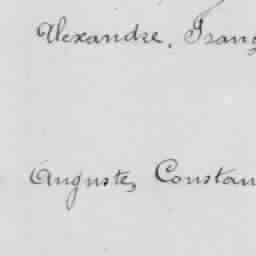 Alexandre, Franç
Auguste, Constan